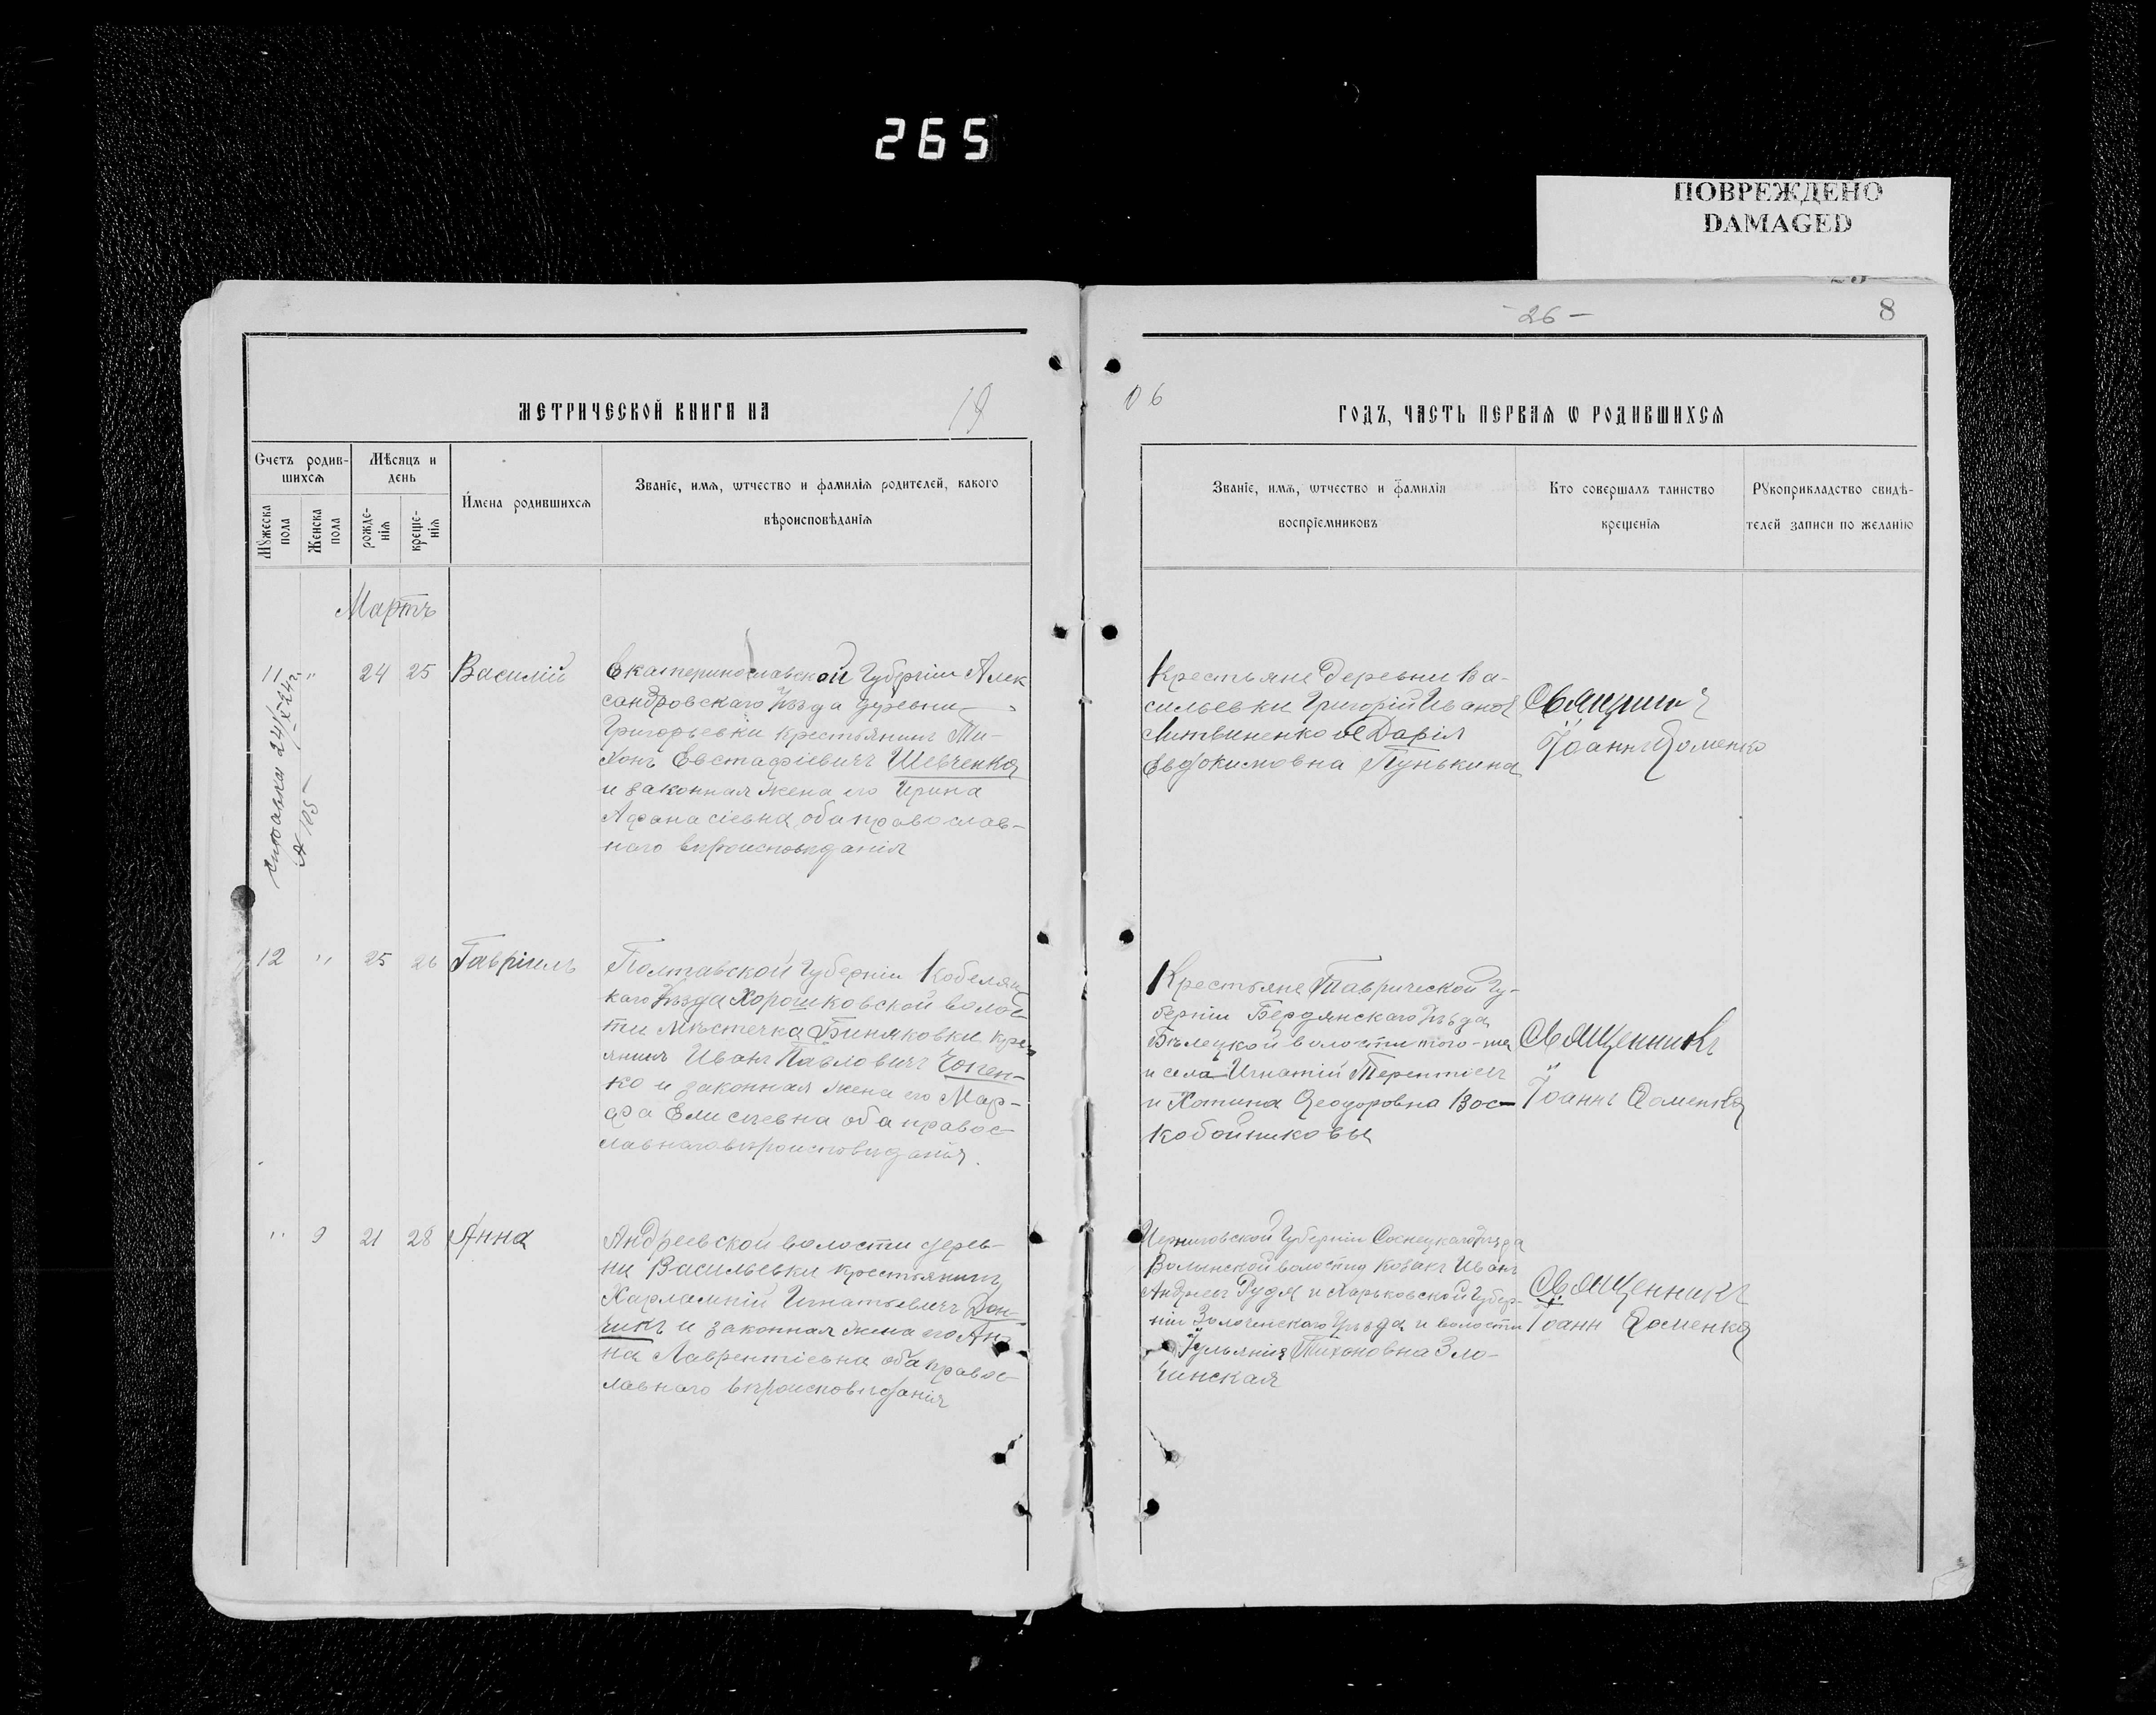 265
ПОВРЕЖДЕНО
DAMAGED
- 26 -
8
МЕТРИЧЕСКОЙ КНИГИ НА
19
06
ГОДЪ, ЧАСТЬ ПЕРВАѦ Ѡ РОДИВШИХСѦ
Счетъ родив-
шихсѧ
Мѣсяцъ и
день
Мꙋжеска
пола
Женска
пола
рожде-
нїѧ
креще-
нїѧ
Имена родившихсѧ
Званїе, имѧ, ѡтчество и фамилїѧ родителей, какого
вѣроисповѣданїѧ
Званїе, имѧ, ѡтчество и фамилїѧ
воспрїемниковъ
Кто совершалъ таинство
крещенїѧ
Рꙋкоприкладство свидѣ-
телей записи по желанїю
Мартъ
11 " 24 25 Василій
Екатеринославской Губерніи Алек
сандровскаго Уѣзда деревни
Григорьевки крестьянинъ Ти-
хонъ Евстафіевичъ Шевченко
и законная жена его Ирина
Афанасіевна, оба православ-
наго вѣроисповѣданія
Крестьяне деревни Ва-
сильевки Григорій Иванов
Литвиненко и Дарія
Евдокимовна Пунькина
Священникъ
Іоаннъ Доменко
№ 105
12 " 25 26 Гавріилъ
Полтавской Губерніи Кобеляц
каго Уѣзда Хорошковской волос
ти Мѣстечка Биняковки крес
янинъ Иванъ Павловичъ Чопен-
ко и законная жена его Мар-
фа Елисеевна оба правос-
лавнаго вѣроисповѣданія.
Крестьяне Таврической Гу-
берніи Бердянскаго Уѣзда
Бѣлецкой волости того-же
и села Игнатій Терентіевъ
и Хотина Ѳеодоровна Вос-
кобойниковы
Священникъ
Іоаннъ Доменко
" 9 21 28 Анна
Андреевской волости дерев-
ни Васильевки крестьянинъ
Харлампій Игнатьевичъ Дон-
чикъ и законная жена его Ан-
на Лаврентіевна оба правос-
лавнаго вѣроисповѣданія
Черниговской Губерніи Сосницкаго уѣзда
Волынской волости Козакъ Иванъ
Андреевъ Рудя и Харьковской Губер-
ніи Золочевскаго Уѣзда и волости
Іульянія Тихоновна Зло-
чинская
Священникъ
Іоаннъ Доменко